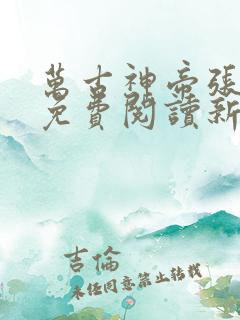 萬古神帝張
免費閱讀新
吉倫
未经同意禁止转载